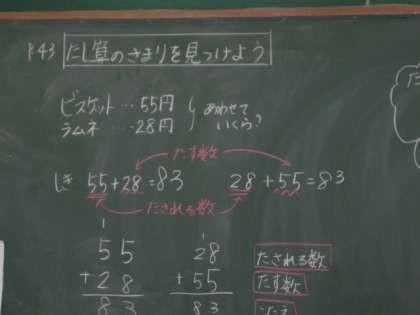 P43 たし算のきまりを見つけよう
ビスケット…55円
ラムネ…28円
あわせて
いくら?
たす数
しき 55+28=83 28+55=83
たされる数
1 1
55 28
+28 +55
83 83
たされる数
たす数
こたえ
た